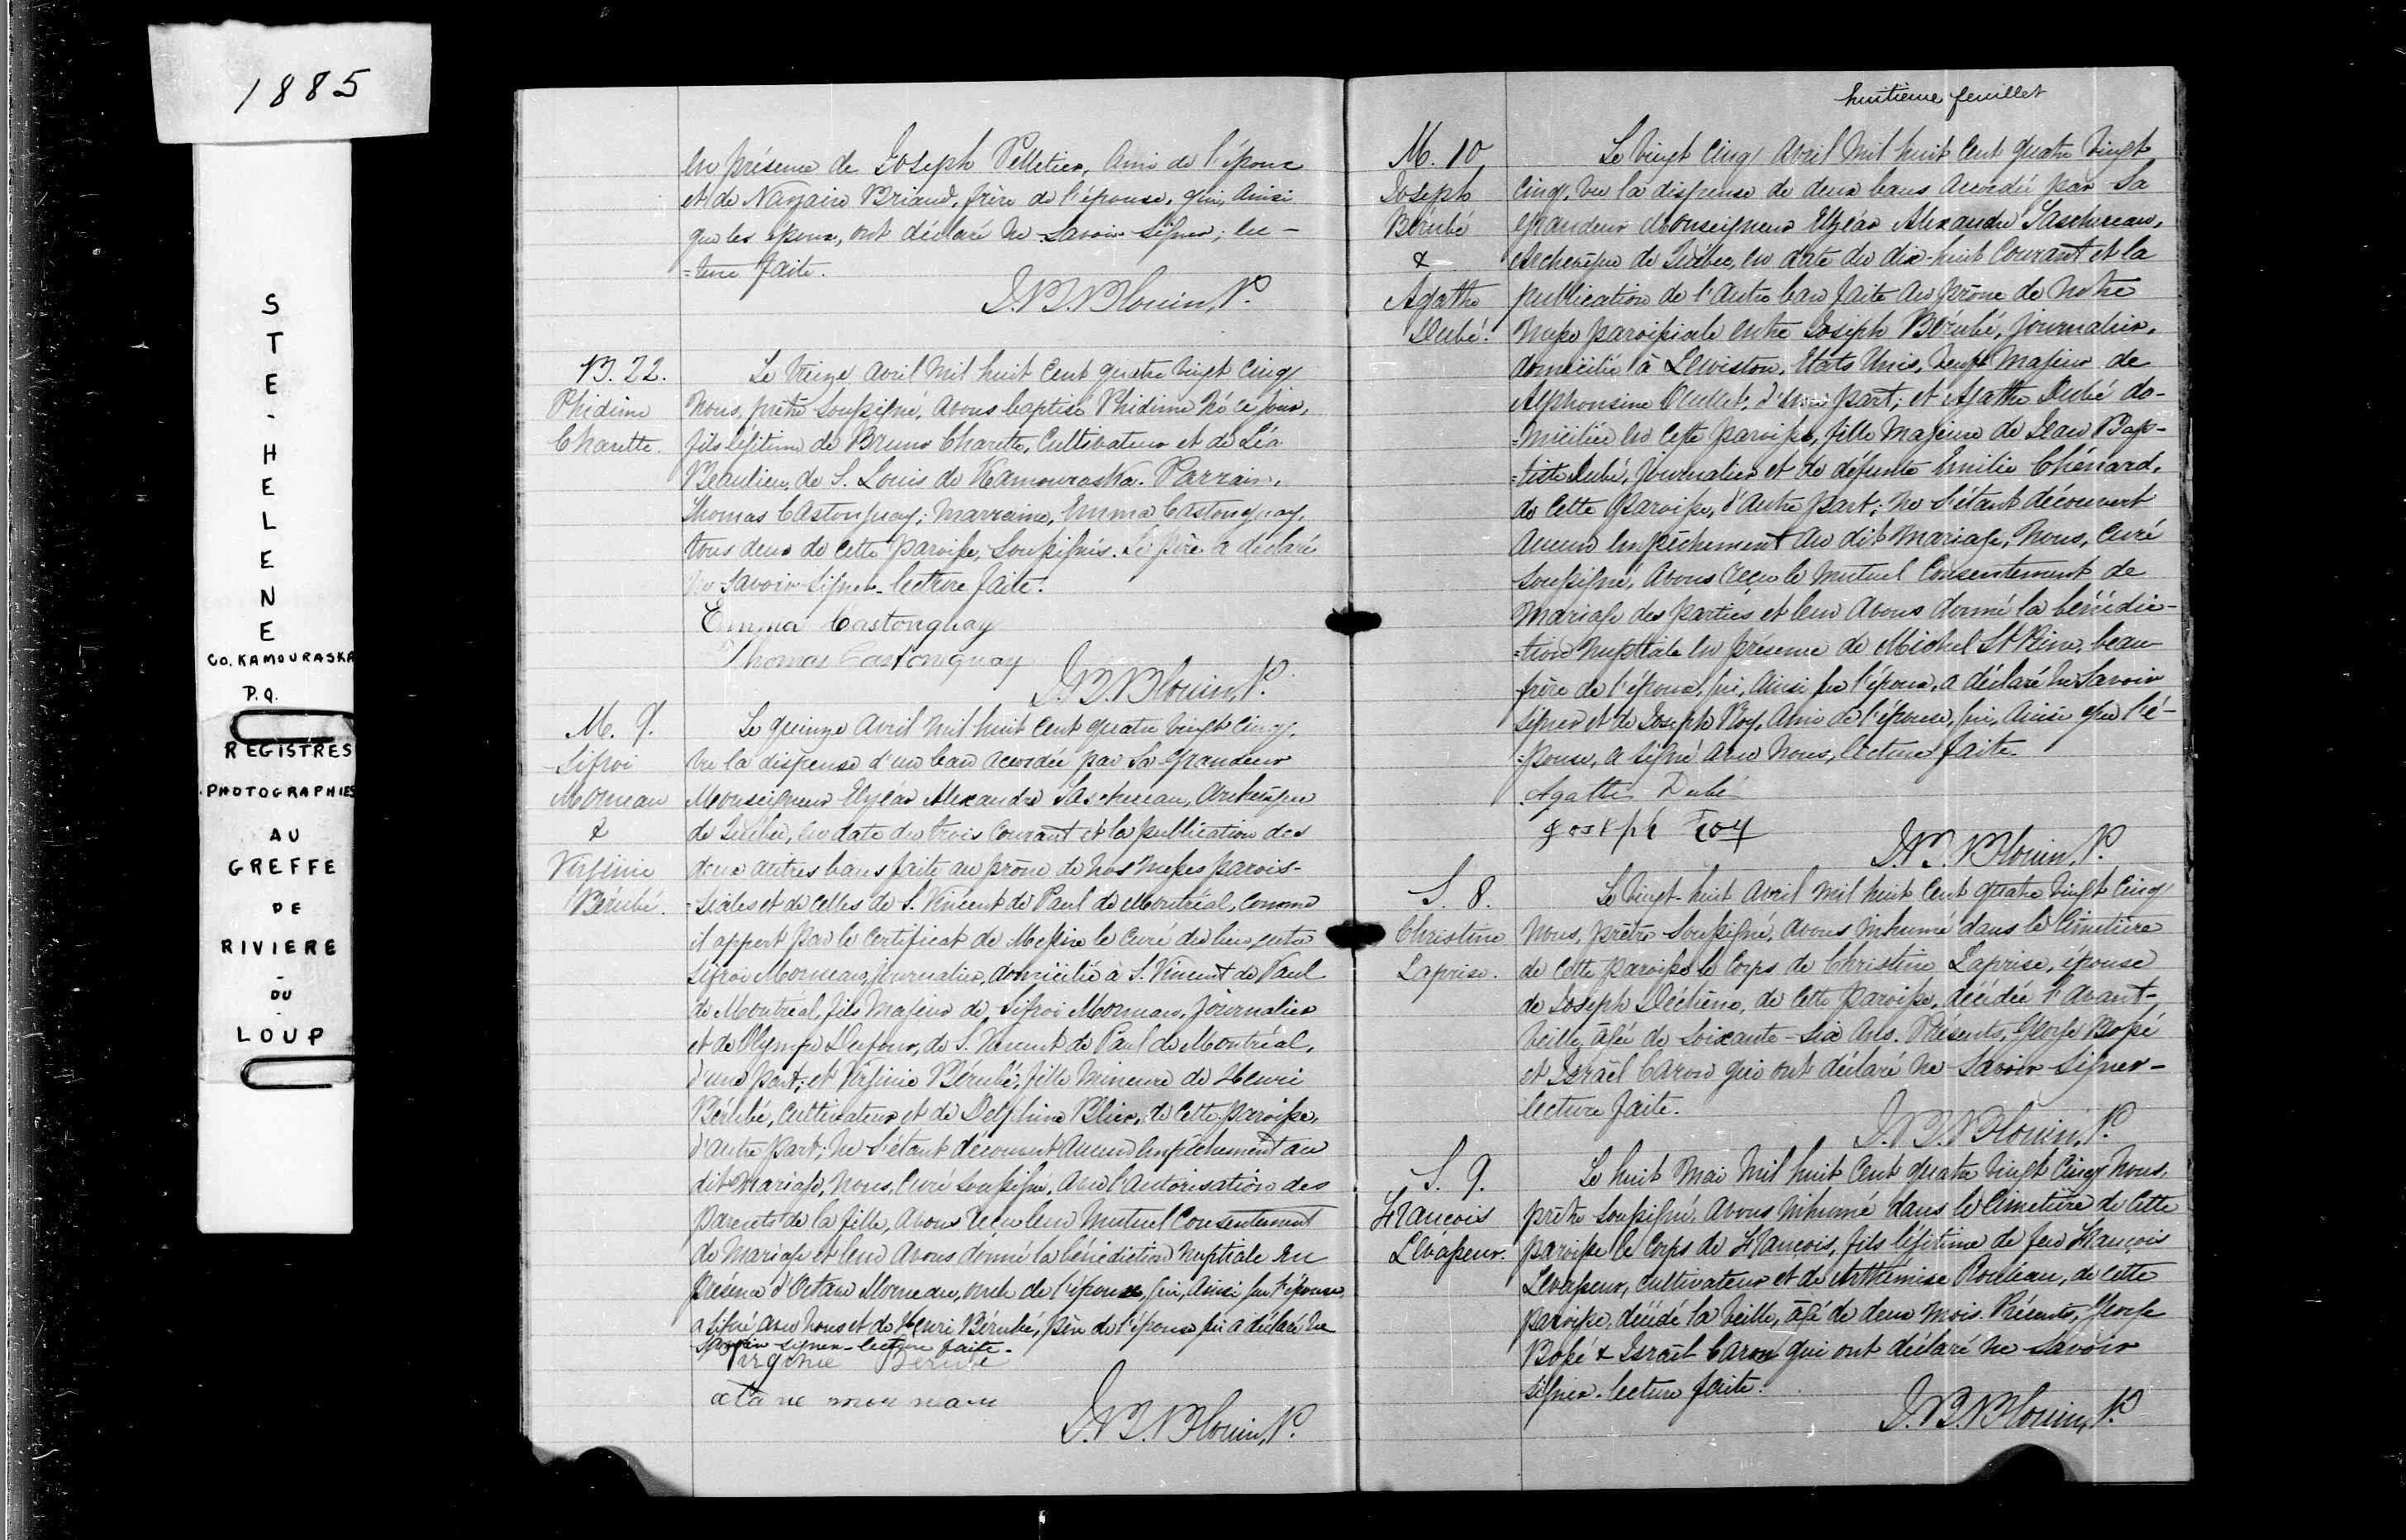 1885
STE-HELENE
CO. KAMOURASKA
P.Q.
REGISTRES
PHOTOGRAPHIES
AU
GREFFE
DE
RIVIERE
-
DU
-
LOUP
en présence de Joseph Pelletier, ami de l'époux
et de Nazaire Briand, frère de l'épouse, qui, ainsi
que les époux, ont déclaré ne savoir signer; lec-
=ture faite.
J.B.Blouin, P.
B. 22.
Phidime
Charette.
Le treize avril mil huit cent quatre vingt cinq
nous, prêtre soussigné, avons baptisé Phidime né ce jour,
fils légitime de Bruno Charette, cultivateur et de Léa
Beaulieu, de S. Louis de Kamouraska. Parrain,
Thomas Castonguay; marraine, Emma Castonguay,
tous deux de cette paroisse, soussignés. Le père a déclaré
ne savoir signer. lecture faite.
Emma Castonguay
Thomas Castonguay
J.B.Blouin, P.
M. 9.
Sifroi
Morneau
&
Virginie
Bérubé.
Le quinze avril mil huit cent quatre vingt cinq,
vu la dispense d'un ban accordée par Sa Grandeur
Monseigneur Elzéar Alexandre Taschereau, Archevêque
de Québec, en date du trois courant et la publication des
deux autres bans faite au prône de nos messes parois-
-siales et de celles de S. Vincent de Paul de Montréal, comme
il appert par le certificat de Messire le curé du lieu, entre
Sifroi Morneau, journalier, domicilié à S. Vincent de Paul
de Montréal, fils majeur de Sifroi Morneau, journalier
et de Olympe Dufour, de S. Vincent de Paul de Montréal,
d'une part; et Virginie Bérubé, fille mineure de Henri
Bérubé, cultivateur et de Delphine Blier, de cette paroisse,
d'autre part; ne s'étant découvert aucun empêchement au
dit mariage, nous, curé soussigné, avec l'autorisation des
parents de la fille, avons reçu leur mutuel consentement
de mariage et leur avons donné la bénédiction nuptiale en
présence d'Octave Morneau, oncle de l'époux, qui, ainsi que l'épouse,
a signé avec nous et de Henri Bérubé, père de l'épouse qui a déclaré ne
savoir signer - lecture faite.
Virginie Berubé
octave morneau
J.B.Blouin, P.
huitième feuillet
M. 10
Joseph
Bérubé
&
Agathe
Dubé.
Le vingt cinq avril mil huit cent quatre vingt
cinq, vu la dispense de deux bans accordée par Sa
Grandeur Monseigneur Elzéar Alexandre Taschereau,
Archevêque de Québec, en date du dix-huit courant et la
publication de l'autre ban faite au prône de notre
messe paroissiale entre Joseph Bérubé, journalier,
domicilié à Lewiston, Etats Unis, veuf majeur de
Alphonsine Ouellet, d'une part; et Agathe Dubé do-
=miciliée en cette paroisse, fille majeure de Jean Bap-
=tiste Dubé, journalier et de défunte Emilie Chénard,
de cette paroisse, d'autre part; ne s'étant découvert
aucun empêchement au dit mariage, nous, curé
soussigné, avons reçu le mutuel consentement de
mariage des parties et leur avons donné la bénédic-
=tion nuptiale en présence de Michel St Pierre, beau
frère de l'époux, qui, ainsi que l'époux, a déclaré ne savoir
signer et de Joseph Roy, ami de l'épouse, qui, ainsi que l'é-
=pouse, a signé avec nous, lecture faite
Agathe Dubé
Joseph Roy
J.B.Blouin, P.
S. 8.
Christine
Laprise.
Le vingt-huit avril mil huit cent quatre vingt cinq
nous, prêtre soussigné, avons inhumé dans le cimetière
de cette paroisse le corps de Christine Laprise, épouse
de Joseph Dechêne, de cette paroisse, décédée l'avant-
veille, âgée de soixante-six ans. Présents, George Bossé
et Israël Caron qui ont déclaré ne savoir signer -
lecture faite.
J.B.Blouin, P.
S. 9.
François
Levasseur.
Le huit mai mil huit cent quatre vingt cinq nous,
prêtre soussigné, avons inhumé dans le cimetière de cette
paroisse le corps de François, fils légitime de feu François
Levasseur, cultivateur et de Arthémise Rouleau, de cette
paroisse, décédé la veille, âgé de deux mois. Présents, George
Bossé & Israël Caron qui ont déclaré ne savoir
signer. lecture faite.
J.B.Blouin, P.